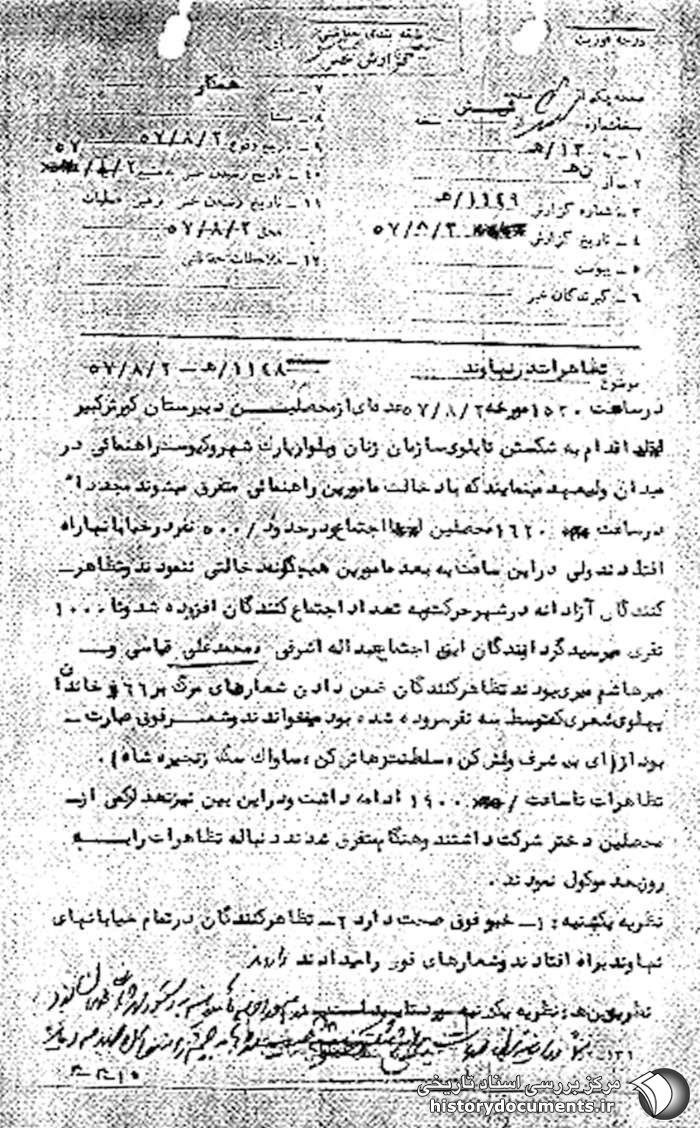 درجه فوریت
طبقه بندی حفاظتی
گزارش خبر
صفحه یکم از صفحه
نسخه شماره از نسخه
۱ـ به ۱۲/هـ
۲ـ از ن هـ
۳ـ شماره گزارش ۱۱۴۹/هـ
۴ـ تاریخ گزارش ۵۷/۸/۳
۵ـ پیوست
۶ـ گیرندگان خبر
۷ـ منبع همکار
۸ـ منشا
۹ـ تاریخ وقوع ۵۷/۸/۲
۱۰ـ تاریخ رسیدن خبر به منبع ۵۷/۸/۲
۱۱ـ تاریخ رسیدن خبر به رهبر عملیات
محل ۵۷/۸/۲
۱۲ـ ملاحظات حفاظتی
موضوع تظاهرات در نهاوند ۱۱۴۸/هـ ـ ۵۷/۸/۲
در ساعت ۱۵۳۰ مورخه ۵۷/۸/۲ عده ای از محصلین دبیرستان کورش کبیر
اقدام به شکستن تابلوی سازمان زنان و بلوار پارک شهر و کیوسک راهنمائی در
میدان ولیعهد مینمایند که با دخالت مامورین راهنمائی متفرق میشوند مجددا"
در ساعت ۱۶۲۰ محصلین اجتماع و در حدود /۵۰۰ نفر در خیابانها راه
افتادند ولی در این ساعت به بعد مامورین هیچگونه دخالتی ننمودند و تظاهر ـ
کنندگان آزادانه در شهر حرکت و به تعداد اجتماع کنندگان افزوده شد و تا ۱۰۰۰
نفری میرسید گردانندگان این اجتماع عبداله اشرفی ، محمد علی قیاسی و ـ
میرهاشم میری بودند تظاهرکنندگان ضمن دادن شعارهای مرگ بر ۶۶ و خاندان
پهلوی شعری که توسط سه نفر سروده شده بود میخواندند و شعر فوق عبارت ـ
بود از (ای بی شرف ولش کن ، سلطنت رها کن ، ساواک سگ زنجیره شاه ) .
تظاهرات تا ساعت /۱۹۰۰ ادامه داشت و در این بین نیز تعداد کمی از ـ
محصلین دختر شرکت داشتند و هنگام متفرق شدند دنباله تظاهرات را به
روز بعد موکول نمودند .
نظریه یکشنبه : ۱ـ خبر فوق صحت دارد ۲ـ تظاهرکنندگان در تمام خیابانهای
نهاوند براه افتادند و شعارهای فوق را میدادند
نظریه ن هـ : نظریه یکشنبه
مرکز بررسی اسناد تاریخی
historydocuments.ir